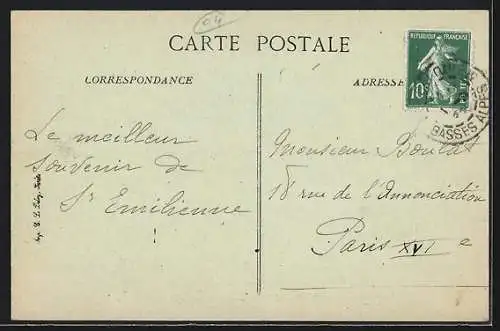 04
CARTE POSTALE
CORRESPONDANCE
ADRESSE
REPUBLIQUE FRANÇAISE
10c
BASSES ALPES
Le meilleur
souvenir de
St Emilienne
Monsieur Boulat
18 rue de l'Annonciation
Paris XVIe